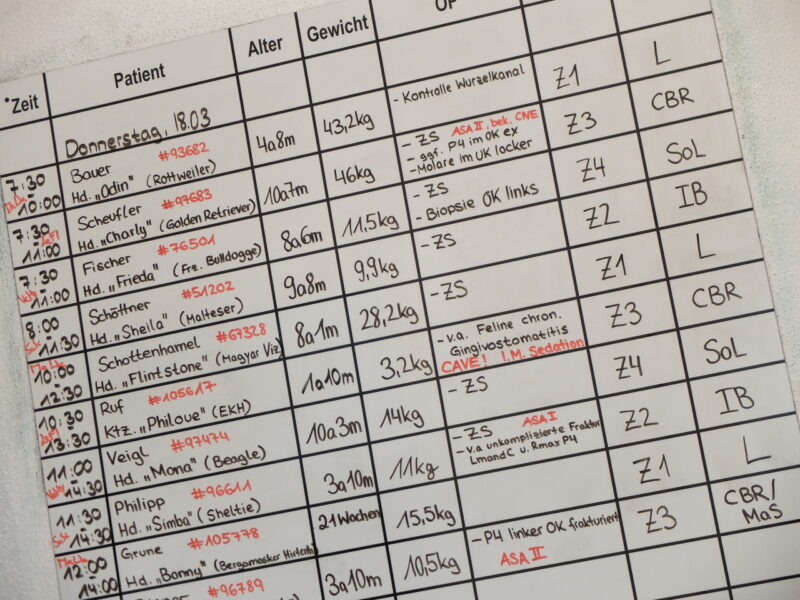 Zeit Patient Alter Gewicht OP
Donnerstag, 18.03
7:30 10:00 Bauer #93682 4a8m 43,2kg - Kontrolle Wurzelkanal Z1 L
Hd. „Odin" (Rottweiler)
7:30 11:00 Scheufler #97683 10a7m 46kg - ZS ASA II, bek. CNE Z3 CBR
Hd. „Charly" (Golden Retriever) - ggf. P4 im OK ex
- Molare im UK locker
7:30 11:00 Fischer #76501 8a6m 11,5kg - ZS Z4 SoL
Hd. „Frieda" (Frz. Bulldogge) - Biopsie OK links
8:00 11:30 Schöttner #51202 9a8m 9,9kg - ZS Z2 IB
Hd. „Sheila" (Malteser)
10:00 12:30 Schottenhamel #67328 8a1m 28,2kg - ZS Z1 L
Hd. „Flintstone" (Magyar Viz)
10:30 13:30 Ruf #105617 1a10m 3,2kg - v.a. Feline chron. Z3 CBR
Ktz. „Philoue" (EKH) Gingivostomatitis
CAVE! I.M. Sedation
11:00 14:30 Veigl #97474 10a3m 14kg - ZS Z4 SoL
Hd. „Mona" (Beagle)
11:30 14:30 Philipp #96611 3a10m 11kg - ZS ASA I Z2 IB
Hd. „Simba" (Sheltie) - v.a unkomplizierte Fraktur
LmandC u. Rmax P4
12:00 14:00 Grune #105778 21Wochen 15,5kg Z1 L
Hd. „Bonny" (Bergamasker Hirtenh)
#96789 3a10m 10,5kg - P4 linker OK frakturiert Z3 CBR/
ASA II MaS